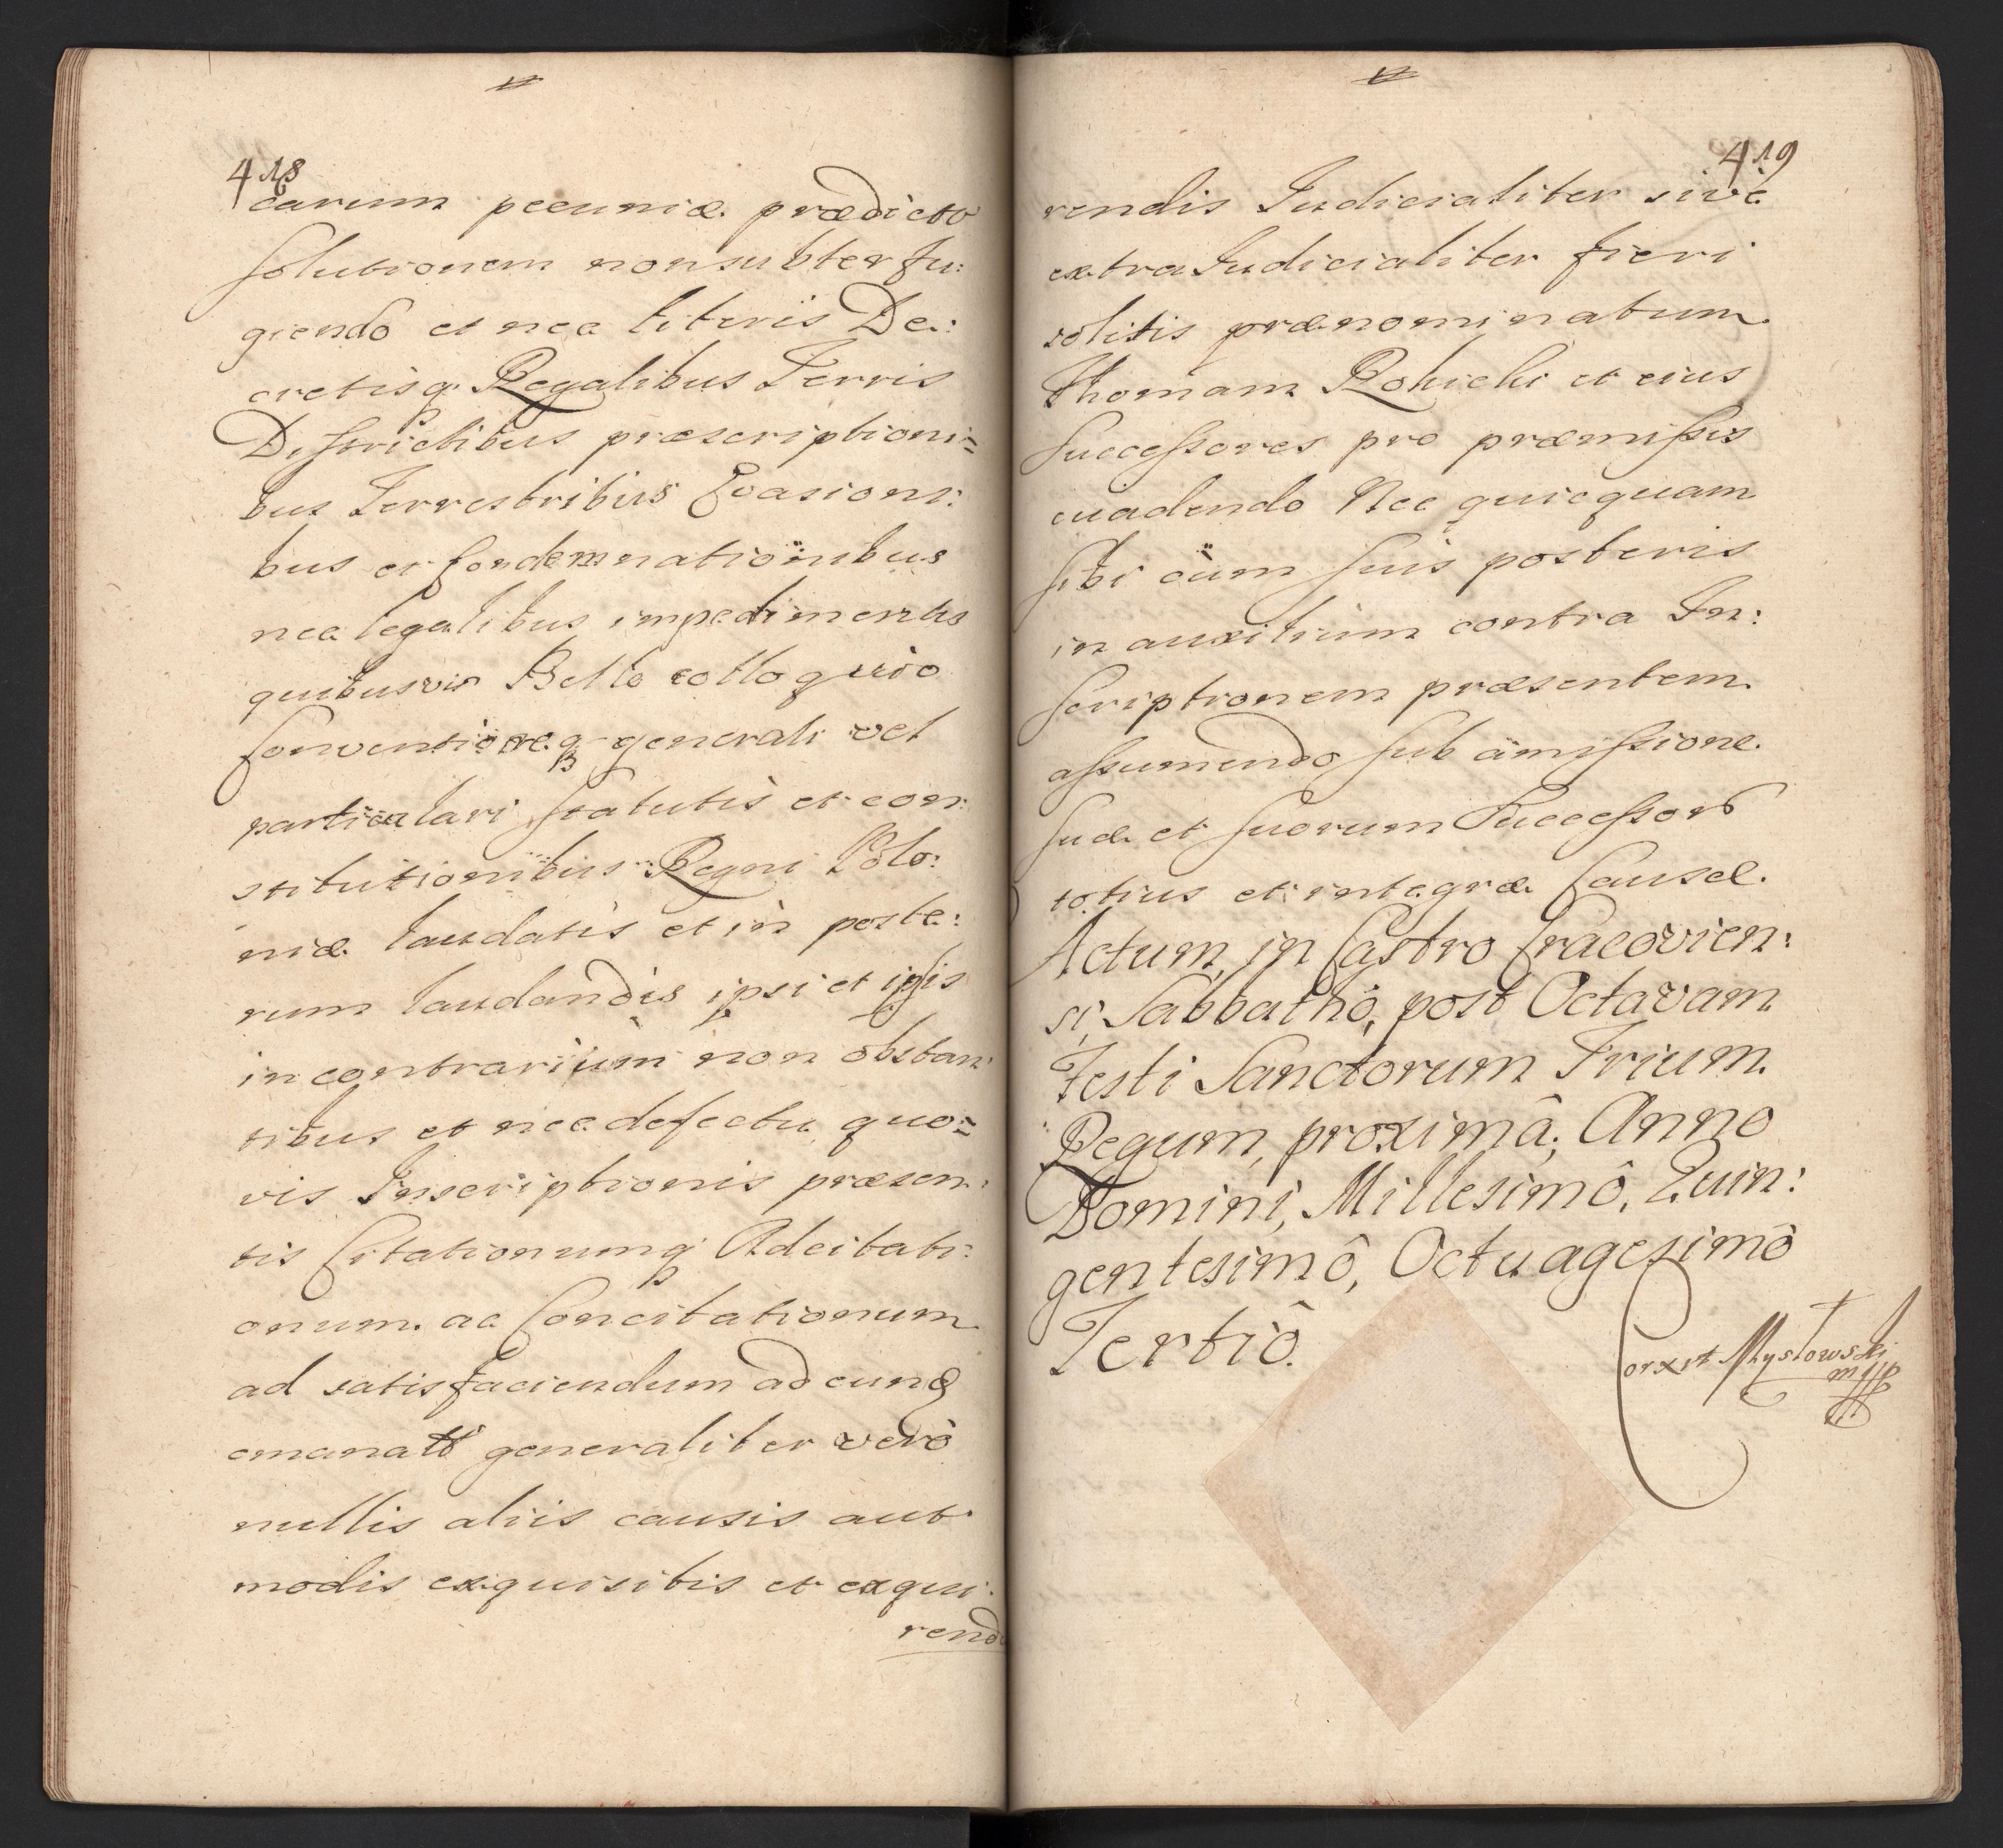 418
earum pecuniæ prædicto
solutionem nonsubterfu:
giendo et nec literis De:
cretisq. Regalibus Terris
Districtibus præscriptioni=
bus Terrestribus Evasioni:
bus et Condemnationibus
nec legalibus impedimentis
quibusvis Bello colloquio
Conventioneq generali vel
particulari statutis et con:
stitutionibus Regni Polo:
niæ laudatis et in poste:
rum laudandis ipsi et ipsis
in contrarium non obstan:
tibus et nec defectu quo=
vis Inscriptionis præsen:
tis Citationumq Adcitati:
onum ac Concitationum
ad satisfaciendum ad eunq
emanatt generaliter vero
nullis aliis causis aut
modis exquisitis et exqui:
rendi
419
rendis Iudicialiter sive
extra Iudicialiter fieri
solitis prænominatum
Thomam Rohichi et eius
Successores pro præmissis
evadendo Nec quicquam
sibi cum suis posteris
in auxilium contra In:
scriptionem præsentem
assumendo sub amissione
suæ et suorum Successor
totius et integræ Causæ.
Actum, in Castro Cracovien:
si, Sabbathô, post Octavam
Festi Sanctorum Trium
Regum, proximâ, Anno
Domini, Millesimô, Quin:
gentesimô, Octuagesimô
Tertiô.
Corxit Mysłowski
mpp